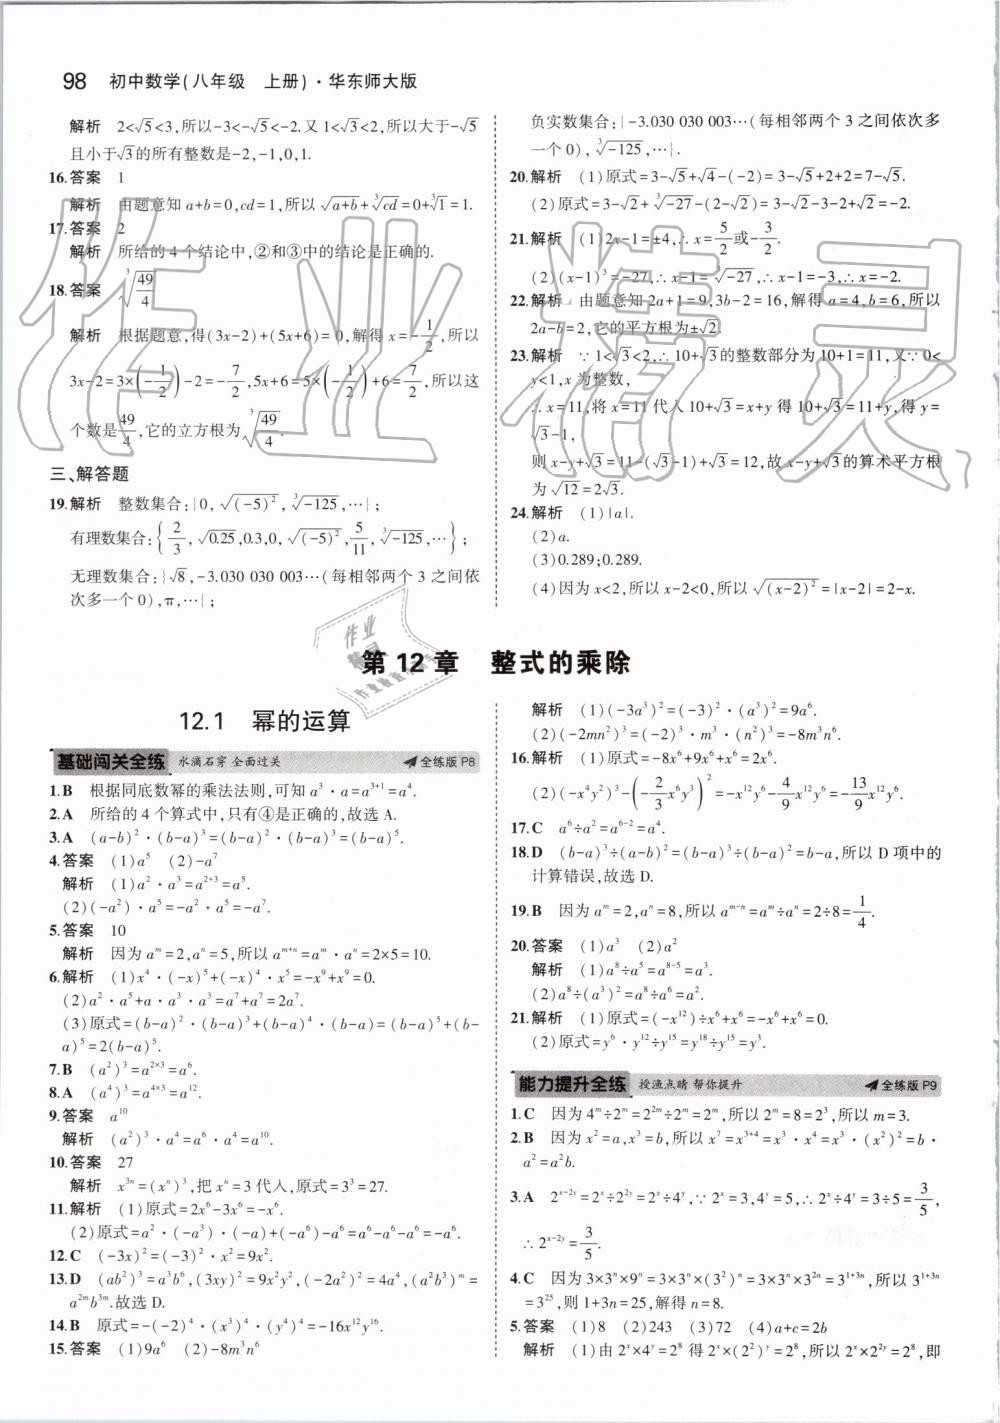 98 初中数学(八年级 上册)·华东师大版
解析 2<√5<3,所以-3<-√5<-2.又1<√3<2,所以大于-√5
且小于√3的所有整数是-2,-1,0,1.
16.答案 1
解析 由题意知a+b=0,cd=1,所以√(a+b)+∛(cd)=0+∛1=1.
17.答案 2
解析 所给的4个结论中,②和③中的结论是正确的.
18.答案 ∛(49/4)
解析 根据题意,得(3x-2)+(5x+6)=0,解得x=-1/2,所以
3x-2=3×(-1/2)-2=-7/2,5x+6=5×(-1/2)+6=7/2,所以这
个数是49/4,它的立方根为∛(49/4).
三、解答题
19.解析 整数集合:{0,√((-5)²),∛-125,…};
有理数集合:{2/3,√0.25,0.3,0,√((-5)²),5/11,∛-125,…};
无理数集合:{√8,-3.030 030 003…(每相邻两个3之间依
次多一个0),π,…};
负实数集合:{-3.030 030 003…(每相邻两个3之间依次多
一个0),∛-125,…}.
20.解析 (1)原式=3-√5+√4-(-2)=3-√5+2+2=7-√5.
(2)原式=3-√2+∛-27-(2-√2)=3-√2-3-2+√2=-2.
21.解析 (1)2x-1=±4,∴x=5/2或-3/2.
(2)(x-1)³=-27,∴x-1=∛-27,∴x-1=-3,∴x=-2.
22.解析 由题意知2a+1=9,3b-2=16,解得a=4,b=6,所以
2a-b=2,它的平方根为±√2.
23.解析 ∵1<√3<2,∴10+√3的整数部分为10+1=11,又∵0<
y<1,x为整数,
∴x=11,将x=11代入10+√3=x+y得10+√3=11+y,得y=
√3-1,
则x-y+√3=11-(√3-1)+√3=12,故x-y+√3的算术平方根
为√12=2√3.
24.解析 (1)|a|.
(2)a.
(3)0.289;0.289.
(4)因为x<2,所以x-2<0,所以√((x-2)²)=|x-2|=2-x.
第12章 整式的乘除
12.1 幂的运算
基础闯关全练 水滴石穿 全面过关 全练版P8
1.B 根据同底数幂的乘法法则,可知a³·a=a³⁺¹=a⁴.
2.A 所给的4个算式中,只有④是正确的,故选A.
3.A (a-b)²·(b-a)³=(b-a)²·(b-a)³=(b-a)⁵.
4.答案 (1)a⁵ (2)-a⁷
解析 (1)a²·a³=a²⁺³=a⁵.
(2)(-a²)·a⁵=-a²·a⁵=-a⁷.
5.答案 10
解析 因为aᵐ=2,aⁿ=5,所以aᵐ⁺ⁿ=aᵐ·aⁿ=2×5=10.
6.解析 (1)x⁴·(-x)⁵+(-x)⁴·x⁵=-x⁹+x⁹=0.
(2)a²·a⁵+a·a³·a³=a⁷+a⁷=2a⁷.
(3)原式=(b-a)²·(b-a)³+(b-a)⁴·(b-a)=(b-a)⁵+(b-
a)⁵=2(b-a)⁵.
7.B (a²)³=a²ˣ³=a⁶.
8.A (a⁴)³=a⁴ˣ³=a¹².
9.答案 a¹⁰
解析 (a²)³·a⁴=a⁶·a⁴=a¹⁰.
10.答案 27
解析 x³ⁿ=(xⁿ)³,把xⁿ=3代入,原式=3³=27.
11.解析 (1)原式=2x⁶-3x⁶=-x⁶.
(2)原式=a²·(-a³)·(-a)+(-a⁶)-a⁶=a⁶-a⁶-a⁶=-a⁶.
12.C (-3x)²=(-3)²·x²=9x².
13.D (ab²)³=a³b⁶,(3xy)²=9x²y²,(-2a²)²=4a⁴,(a²b³)ᵐ=
a²ᵐb³ᵐ.故选D.
14.B 原式=-(-2)⁴·(x³)⁴·(y⁴)⁴=-16x¹²y¹⁶.
15.答案 (1)9a⁶ (2)-8m³n⁶
解析 (1)(-3a³)²=(-3)²·(a³)²=9a⁶.
(2)(-2mn²)³=(-2)³·m³·(n²)³=-8m³n⁶.
16.解析 (1)原式=-8x⁶+9x⁶+x⁶=2x⁶.
(2)(-x⁴y²)³-(-2/3x⁶y³)²=-x¹²y⁶-4/9x¹²y⁶=-13/9x¹²y⁶.
17.C a⁶÷a²=a⁶⁻²=a⁴.
18.D (b-a)³÷(a-b)²=(b-a)³÷(b-a)²=b-a,所以D项中的
计算错误,故选D.
19.B 因为aᵐ=2,aⁿ=8,所以aᵐ⁻ⁿ=aᵐ÷aⁿ=2÷8=1/4.
20.答案 (1)a³ (2)a²
解析 (1)a⁸÷a⁵=a⁸⁻⁵=a³.
(2)a⁸÷(a³)²=a⁸÷a⁶=a².
21.解析 (1)原式=(-x¹²)÷x⁶+x⁶=-x⁶+x⁶=0.
(2)原式=y⁶·y¹²÷y¹⁵=y¹⁸÷y¹⁵=y³.
能力提升全练 授渔点睛 帮你提升 全练版P9
1.C 因为4ᵐ÷2ᵐ=2²ᵐ÷2ᵐ=2ᵐ,所以2ᵐ=8=2³,所以m=3.
2.B 因为x²=a,x³=b,所以x⁷=x³⁺⁴=x³·x⁴=x³·(x²)²=b·
a²=a²b.
3.A 2ˣ⁻²ʸ=2ˣ÷2²ʸ=2ˣ÷4ʸ,∵2ˣ=3,4ʸ=5,∴2ˣ÷4ʸ=3÷5=3/5,
∴2ˣ⁻²ʸ=3/5.
4.C 因为3×3ⁿ×9ⁿ=3×3ⁿ×(3²)ⁿ=3×3ⁿ×3²ⁿ=3¹⁺³ⁿ,所以3¹⁺³ⁿ
=3²⁵,则1+3n=25,解得n=8.
5.答案 (1)8 (2)243 (3)72 (4)a+c=2b
解析 (1)由2ˣ×4ʸ=2⁸得2ˣ×(2²)ʸ=2⁸,所以2ˣ×2²ʸ=2⁸,即
作业精灵
作业
精灵